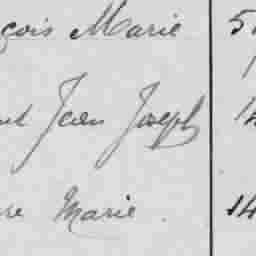 çois Marie 5
Jean Joseph 14
re Marie 14